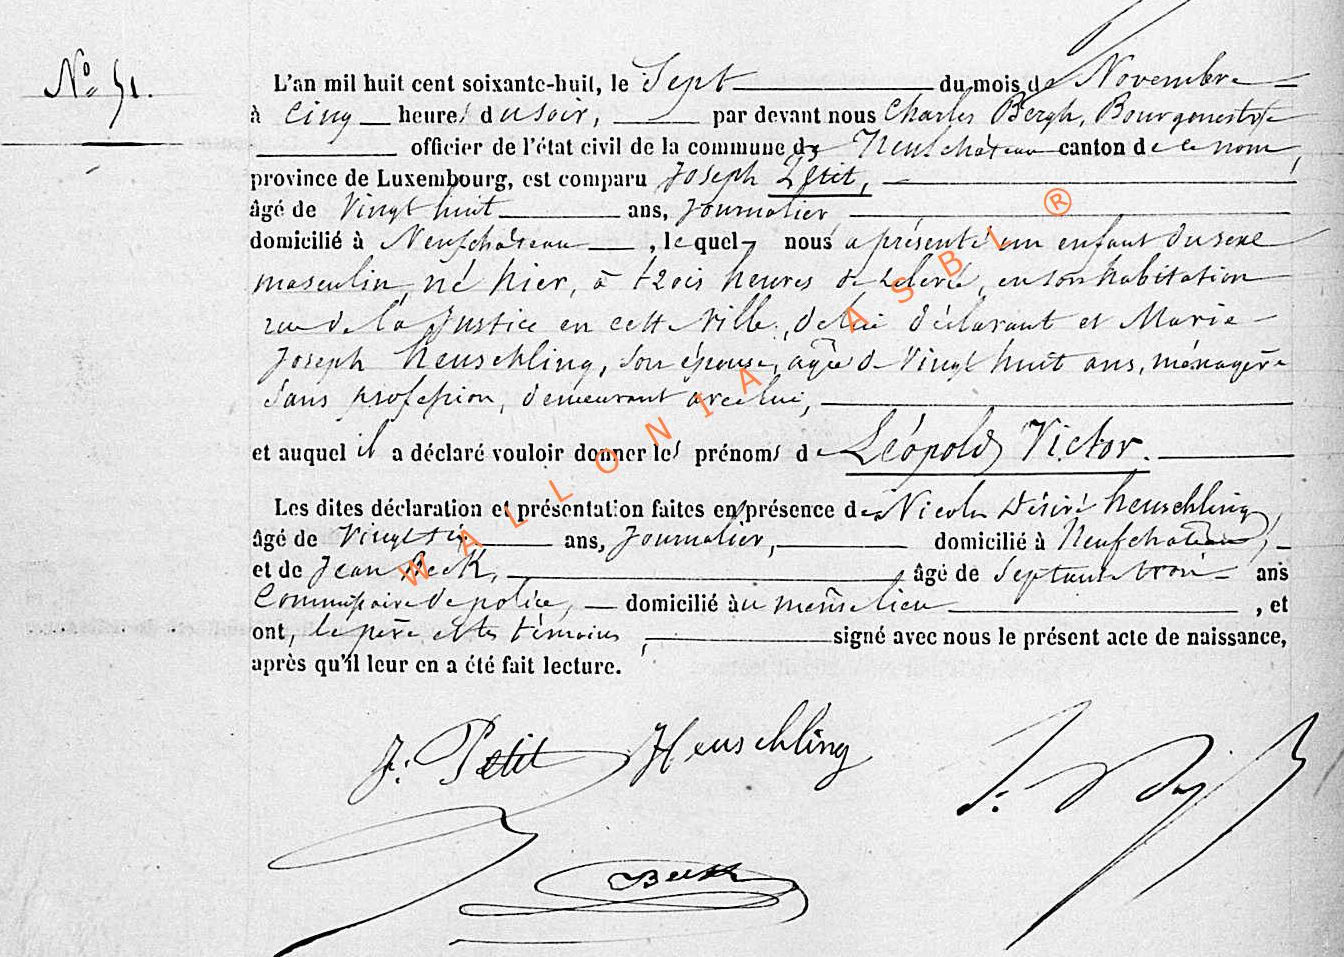 No 51.
L'an mil huit cent soixante-huit, le Sept du mois de Novembre
à Cinq heures du soir, par devant nous Charles Bergh, Bourgmestre
officier de l'état civil de la commune de Neufchâteau canton de ce nom,
province de Luxembourg, est comparu Joseph Petit,
âgé de Vingt huit ans, Journalier
domicilié à Neufchâteau, lequel nous a présenté un enfant du sexe
masculin, né hier, à trois heures de relevée, en son habitation
rue de la Justice en cette Ville, de lui déclarant et Marie
Joseph Heuschling, son épouse, agée de Vingt huit ans, ménagère
sans profession, demeurant avec lui,
et auquel il a déclaré vouloir donner les prénoms de Léopold Victor.
Les dites déclaration et présentation faites en présence de Nicolas Désiré Heuschling,
âgé de Vingt six ans, Journalier, domicilié à Neufchateau,
et de Jean Beck, âgé de Septante trois ans
Commissaire de police, domicilié au même lieu, et
ont, le père et les témoins, signé avec nous le présent acte de naissance,
après qu'il leur en a été fait lecture.
J. Petit Heuschling
Beck
WALLONIA ASBL ®